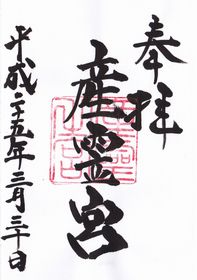 奉拝
産霊宮
平成二十五年三月三十日